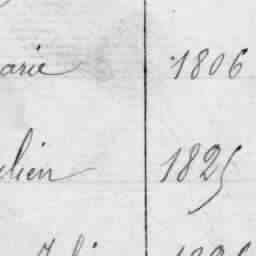 arie 1806
lien 1825